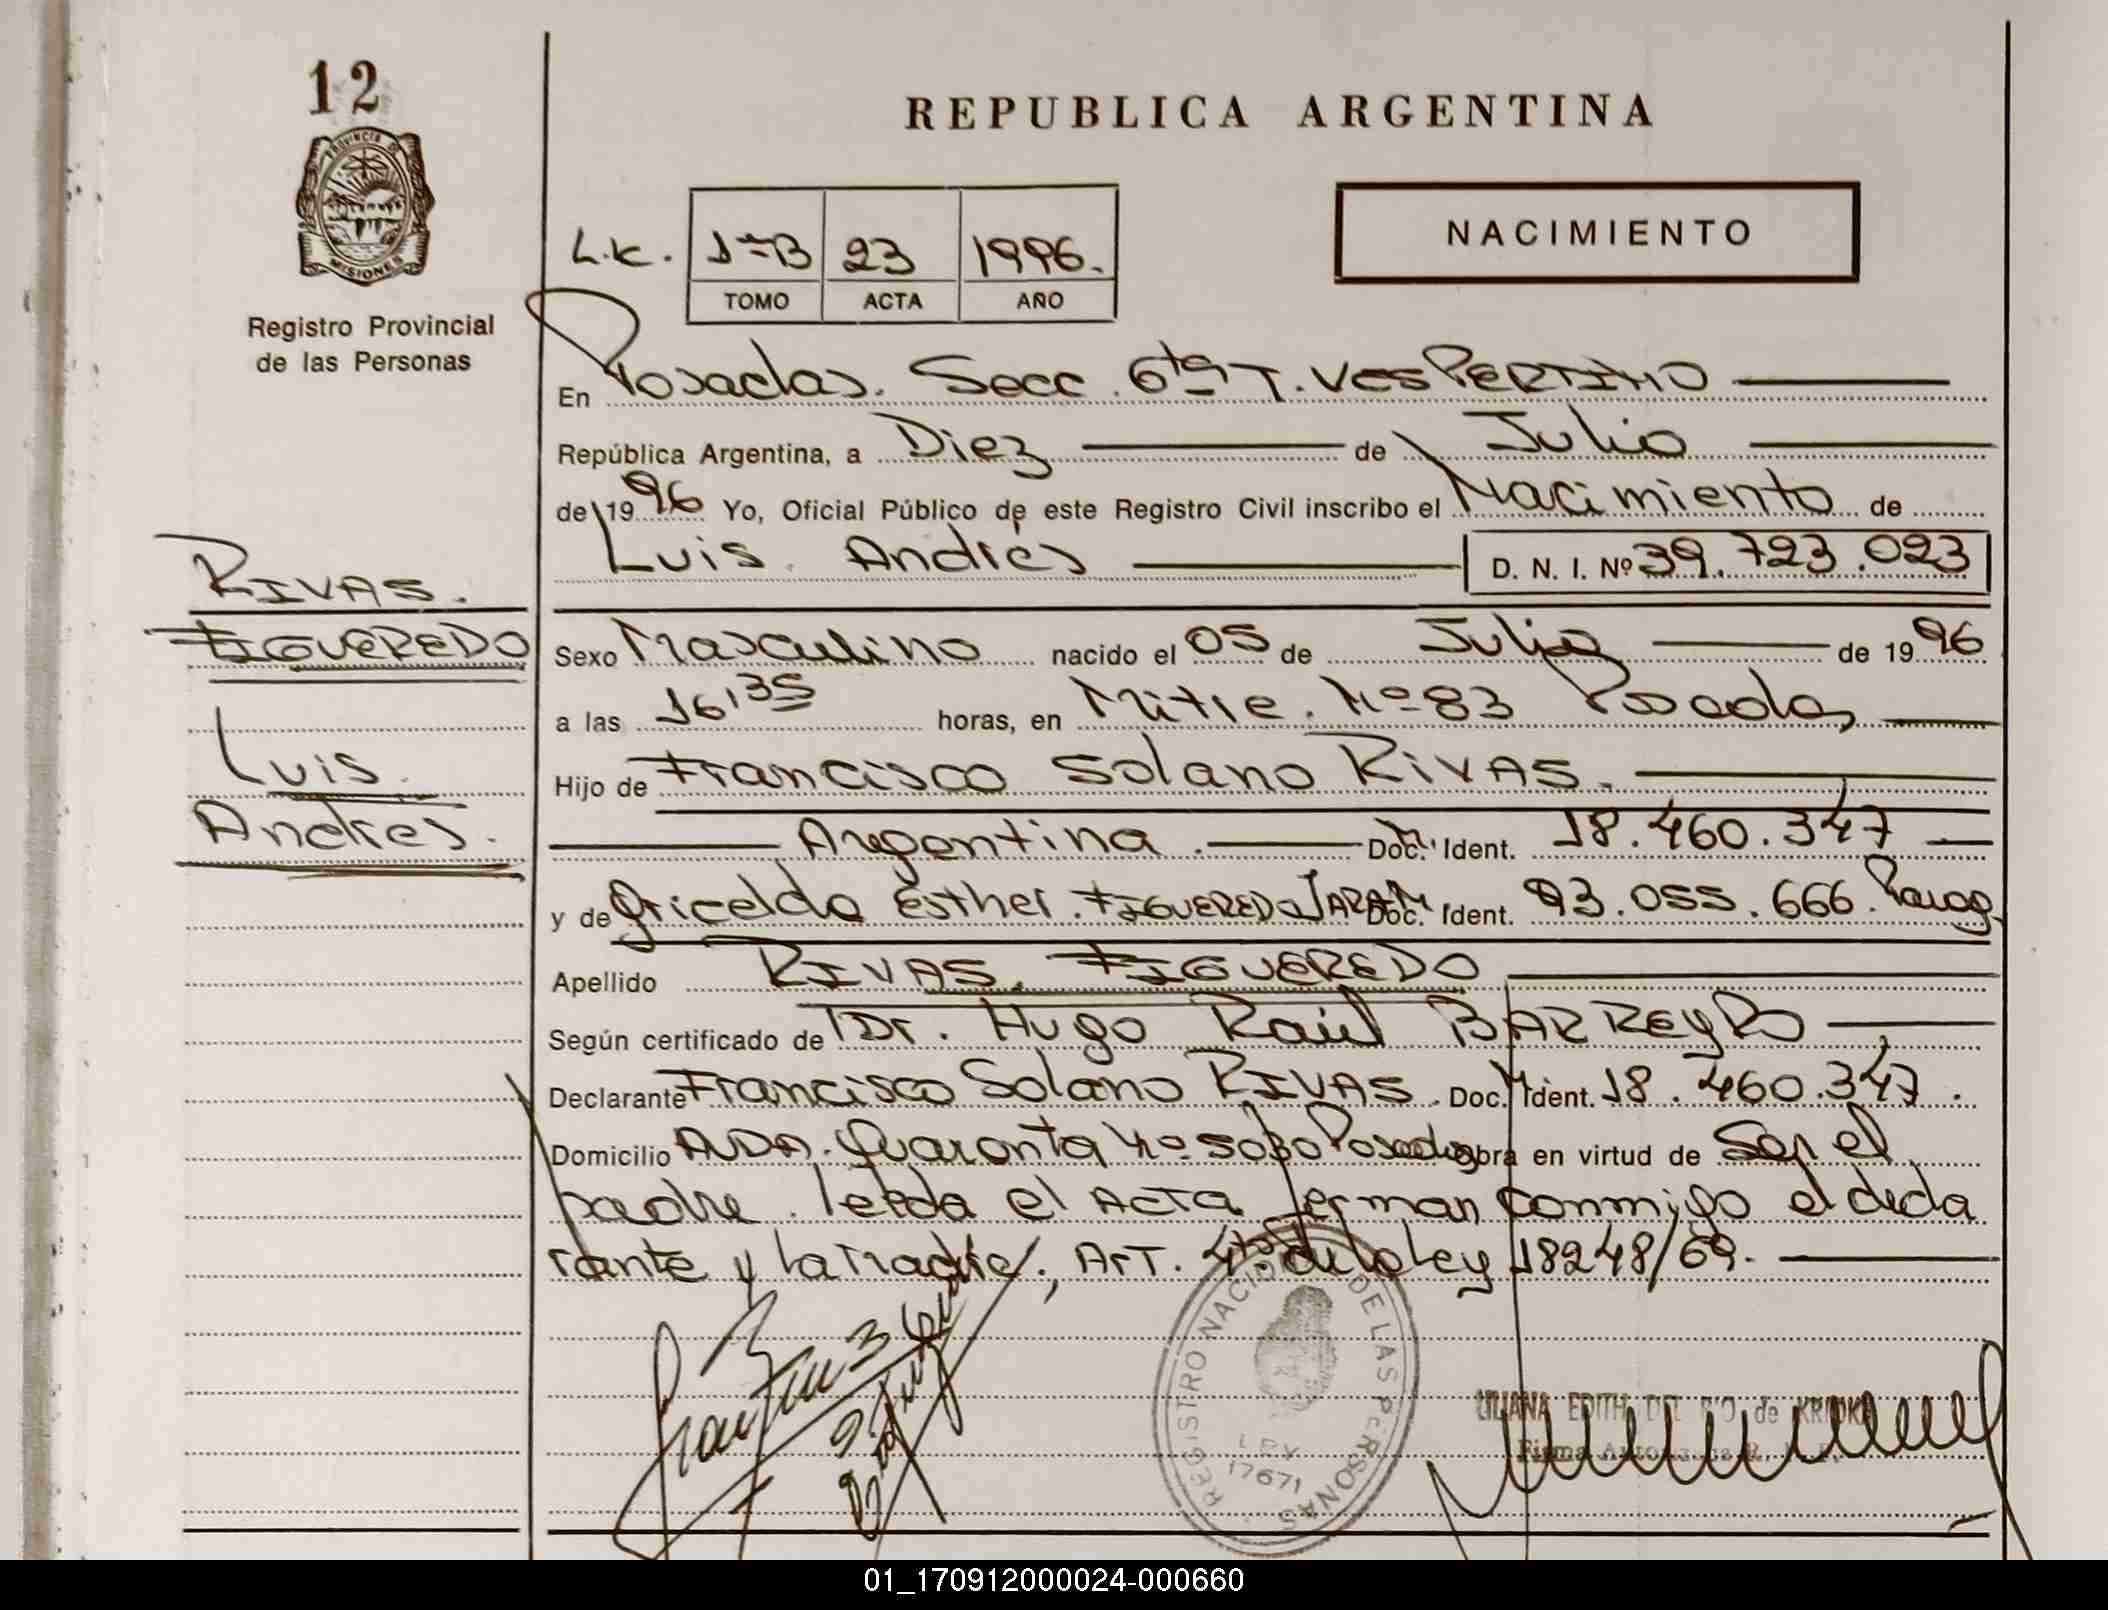 12
PROVINCIA DE
MISIONES
Registro Provincial
de las Personas
REPUBLICA ARGENTINA
NACIMIENTO
L.K. 1=B 23 1996.
TOMO ACTA AÑO
En Posadas. Secc. 6ta T. VESPERTINO
República Argentina, a Diez de Julio
de 1996 Yo, Oficial Público de este Registro Civil inscribo el Nacimiento de
Luis. Andrés D. N. I. Nº 39.723.023
RIVAS.
FIGUEREDO
Luis.
Andrés.
Sexo Masculino nacido el 05 de Julio de 1996
a las 16,35 horas, en Mitre. Nº 83 Posadas
Hijo de Francisco Solano RIVAS.
Argentina. Doc. Ident. 18.460.347
y de Gricelda Esther. FIGUEREDO Doc. Ident. 93.055.666. Parag.
Apellido RIVAS. FIGUEREDO
Según certificado de Dr. Hugo Raúl BARREYRO
Declarante Francisco Solano RIVAS. Doc. Ident. 18.460.347.
Domicilio AVDA. Quaranta Nº 5080 Posadas obra en virtud de Ser el
padre. leida el ACTA ferman conmigo el decla
rante y la madre., ArT. 4to. de la Ley 18248/69.
REGISTRO NACIONAL DE LAS PERSONAS
LEY
17671
LILIANA EDITH DEL RIO de
Firma
01_170912000024-000660